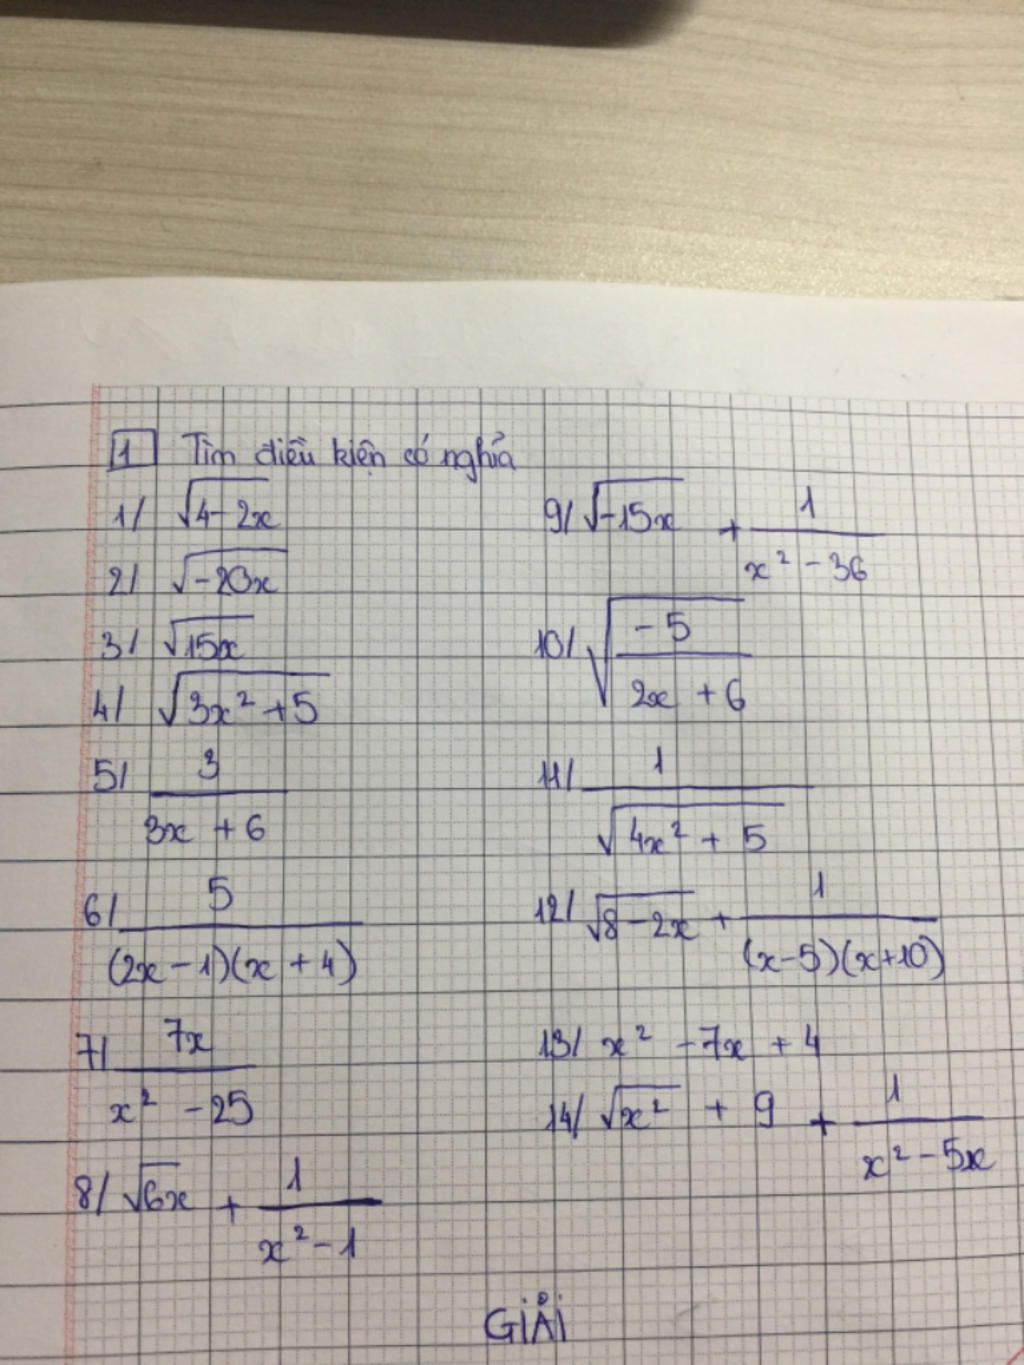 1 Tìm điều kiện có nghĩa
1/ √(4-2x)
2/ √(-20x)
3/ √(15x)
4/ √(3x² + 5)
5/ 3/(3x + 6)
6/ 5/((2x - 1)(x + 4))
7/ 7x/(x² - 25)
8/ √(6x) + 1/(x² - 1)
9/ √(-15x) + 1/(x² - 36)
10/ √(-5/(2x + 6))
11/ 1/√(4x² + 5)
12/ √(8 - 2x) + 1/((x-5)(x+10))
13/ x² - 7x + 4
14/ √(x²) + 9 + 1/(x² - 5x)
GIẢI